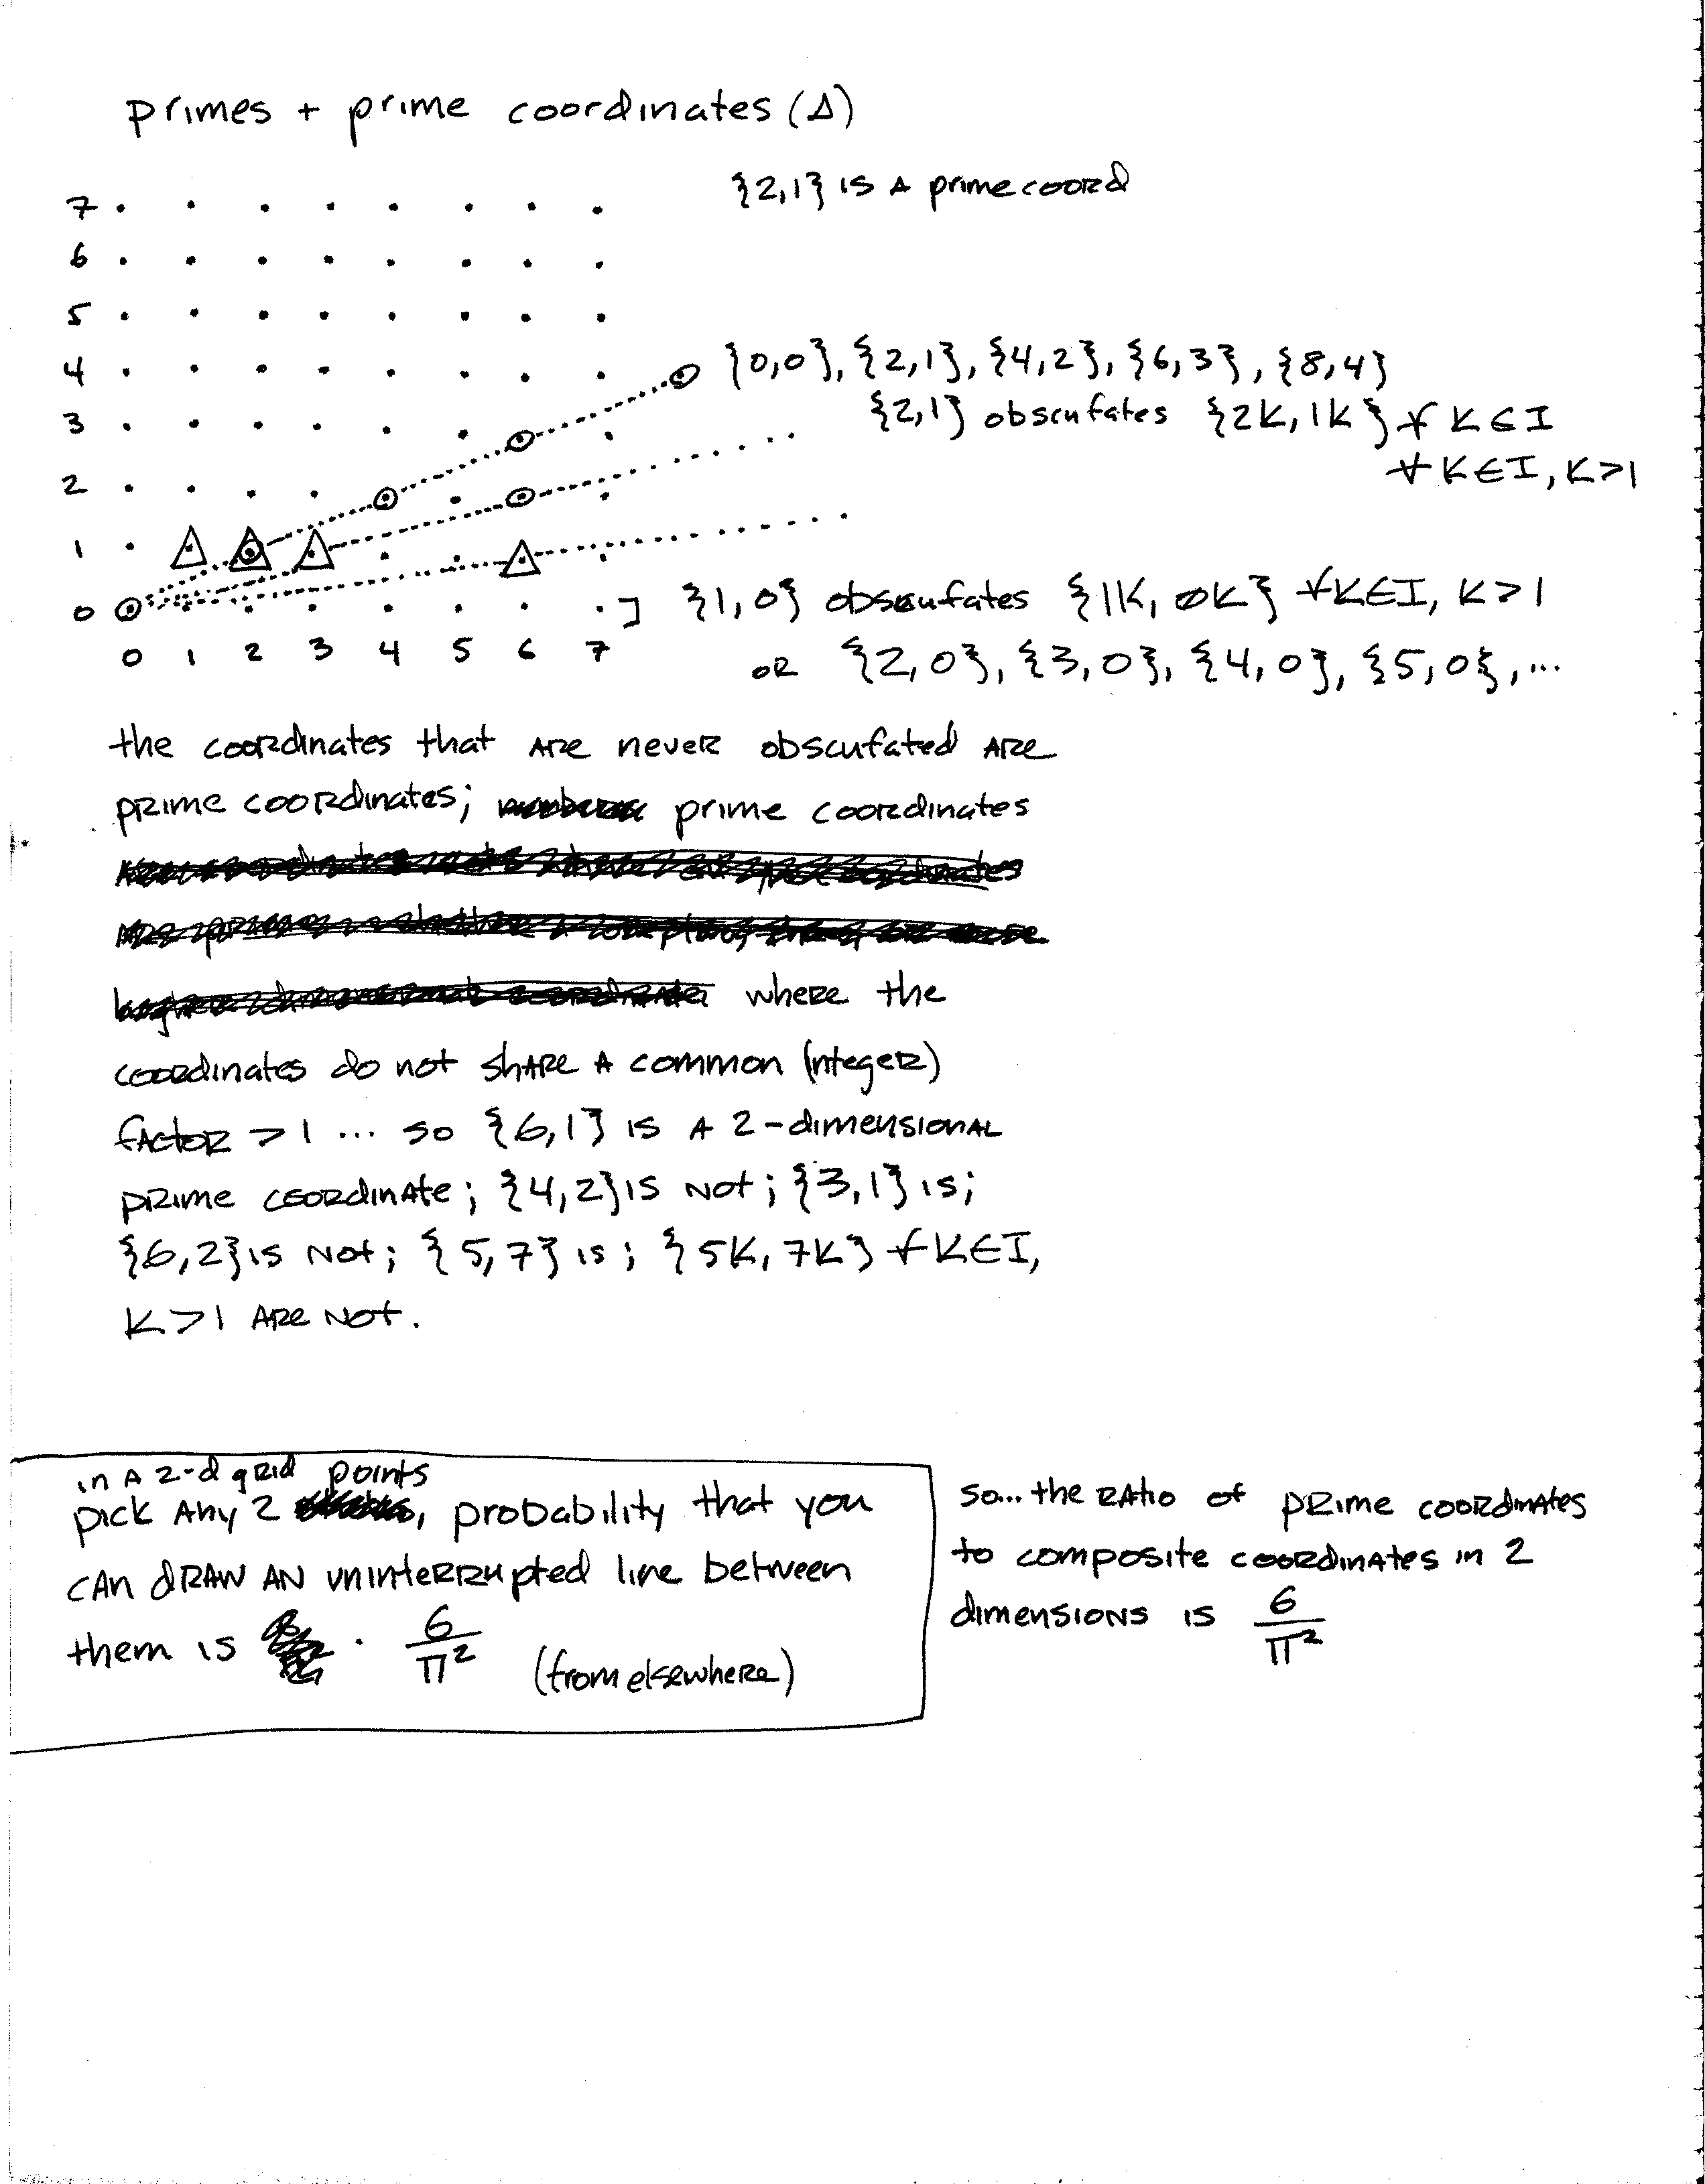 primes + prime coordinates (Δ)
{2,1} is a prime coord
7
6
5
4
{0,0}, {2,1}, {4,2}, {6,3}, {8,4}
3
{2,1} obscufates {2k, 1k} ∀ k ∈ I
2
∀ k ∈ I, k > 1
1
0
] {1,0} obscufates {1k, 0k} ∀ k ∈ I, k > 1
0 1 2 3 4 5 6 7
or {2,0}, {3,0}, {4,0}, {5,0}, ...
the coordinates that are never obscufated are
prime coordinates; prime coordinates
where the
coordinates do not share a common (integer)
factor > 1 ... so {6,1} is a 2-dimensional
prime coordinate; {4,2} is not; {3,1} is;
{6,2} is not; {5,7} is; {5k, 7k} ∀ k ∈ I,
k > 1 are not.
in a 2-d grid points
pick any 2 , probability that you
can draw an uninterrupted line between
them is . 6/π² (from elsewhere)
so... the ratio of prime coordinates
to composite coordinates in 2
dimensions is 6/π²